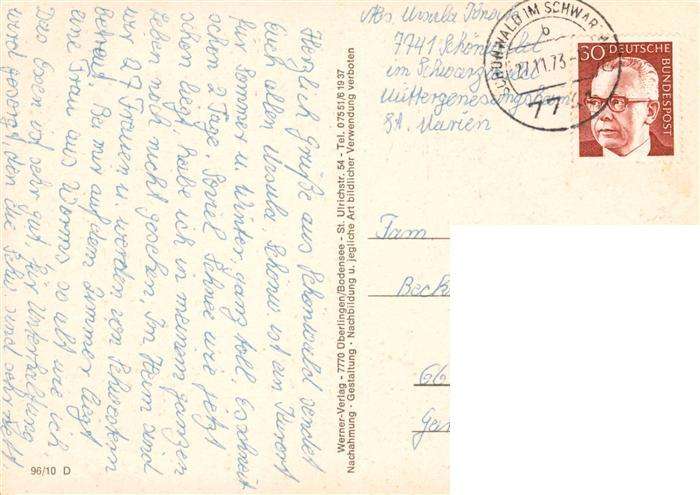 Herzlich Grüße aus Schönwald sendet
Euch allen Ursula. Schönw. ist ein Kurort
für Sommer u. Winter, ganz toll. Es schneit
schon 2 Tage. Soviel Schnee wie jetzt
schon liegt habe ich in meinem ganzen
Leben noch nicht gesehen. Im Heim sind
wir 27 Frauen u. werden von Schwestern
betreut. B. mir auf dem Zimmer liegt
eine Frau aus Worms so alt wie ich.
Das Essen ist sehr gut. Für Unterhaltung
wird gesorgt, den die Schw. sind sehr nett
96/10 D
Werner-Verlag - 7770 Überlingen/Bodensee - St. Ulrichstr. 54 - Tel. 07551/61937
Nachahmung - Gestaltung - Nachbildung u. jegliche Art bildlicher Verwendung verboten
Abs. Ursula
7741 Schönwald
im Schwarzwald
Müttergenesungsheim
St. Marien
SCHÖNWALD IM SCHWARZW
b
27.11.73
7741
30 DEUTSCHE
BUNDESPOST
Fam.
Beck